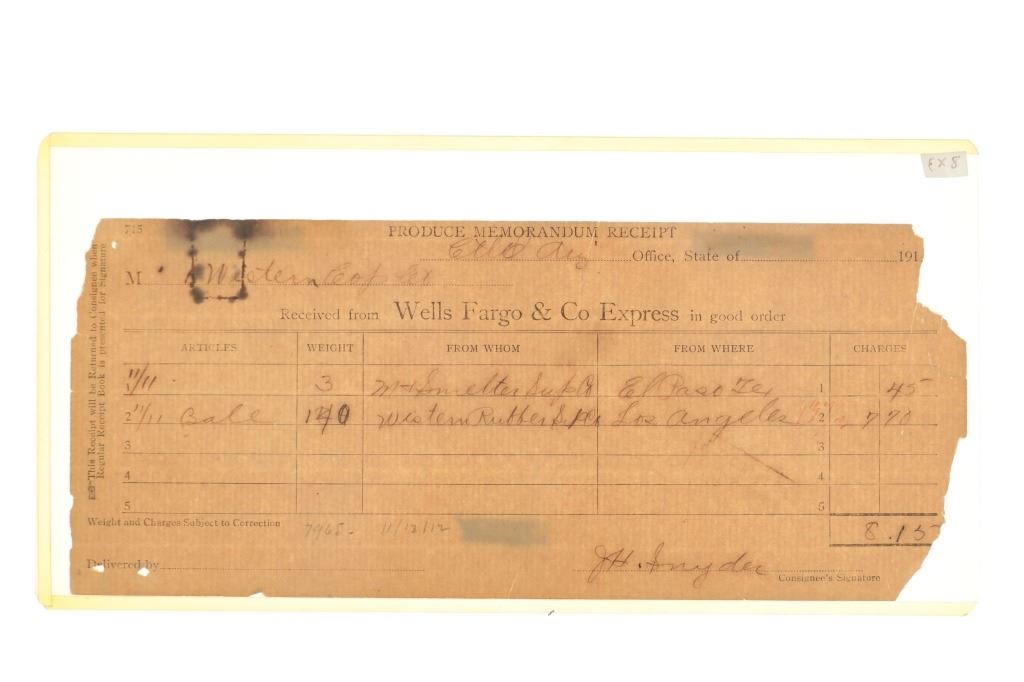 EX 8
715
PRODUCE MEMORANDUM RECEIPT
Office, State of 191
M Western Cop Co
Received from Wells Fargo & Co Express in good order
ARTICLES WEIGHT FROM WHOM FROM WHERE CHARGES
11/11 3 Smelter Sup Co El Paso Tex 1 45
2 11/11 Bale 140 Western Rubber S. Co Los Angeles 2 7 70
3 3
4 4
5 5
8.15
Weight and Charges Subject to Correction 7965- 11/12/12
Delivered by J H. Snyder
Consignee's Signature
This Receipt will be Returned to Consignee when
Regular Receipt Book is presented for Signature